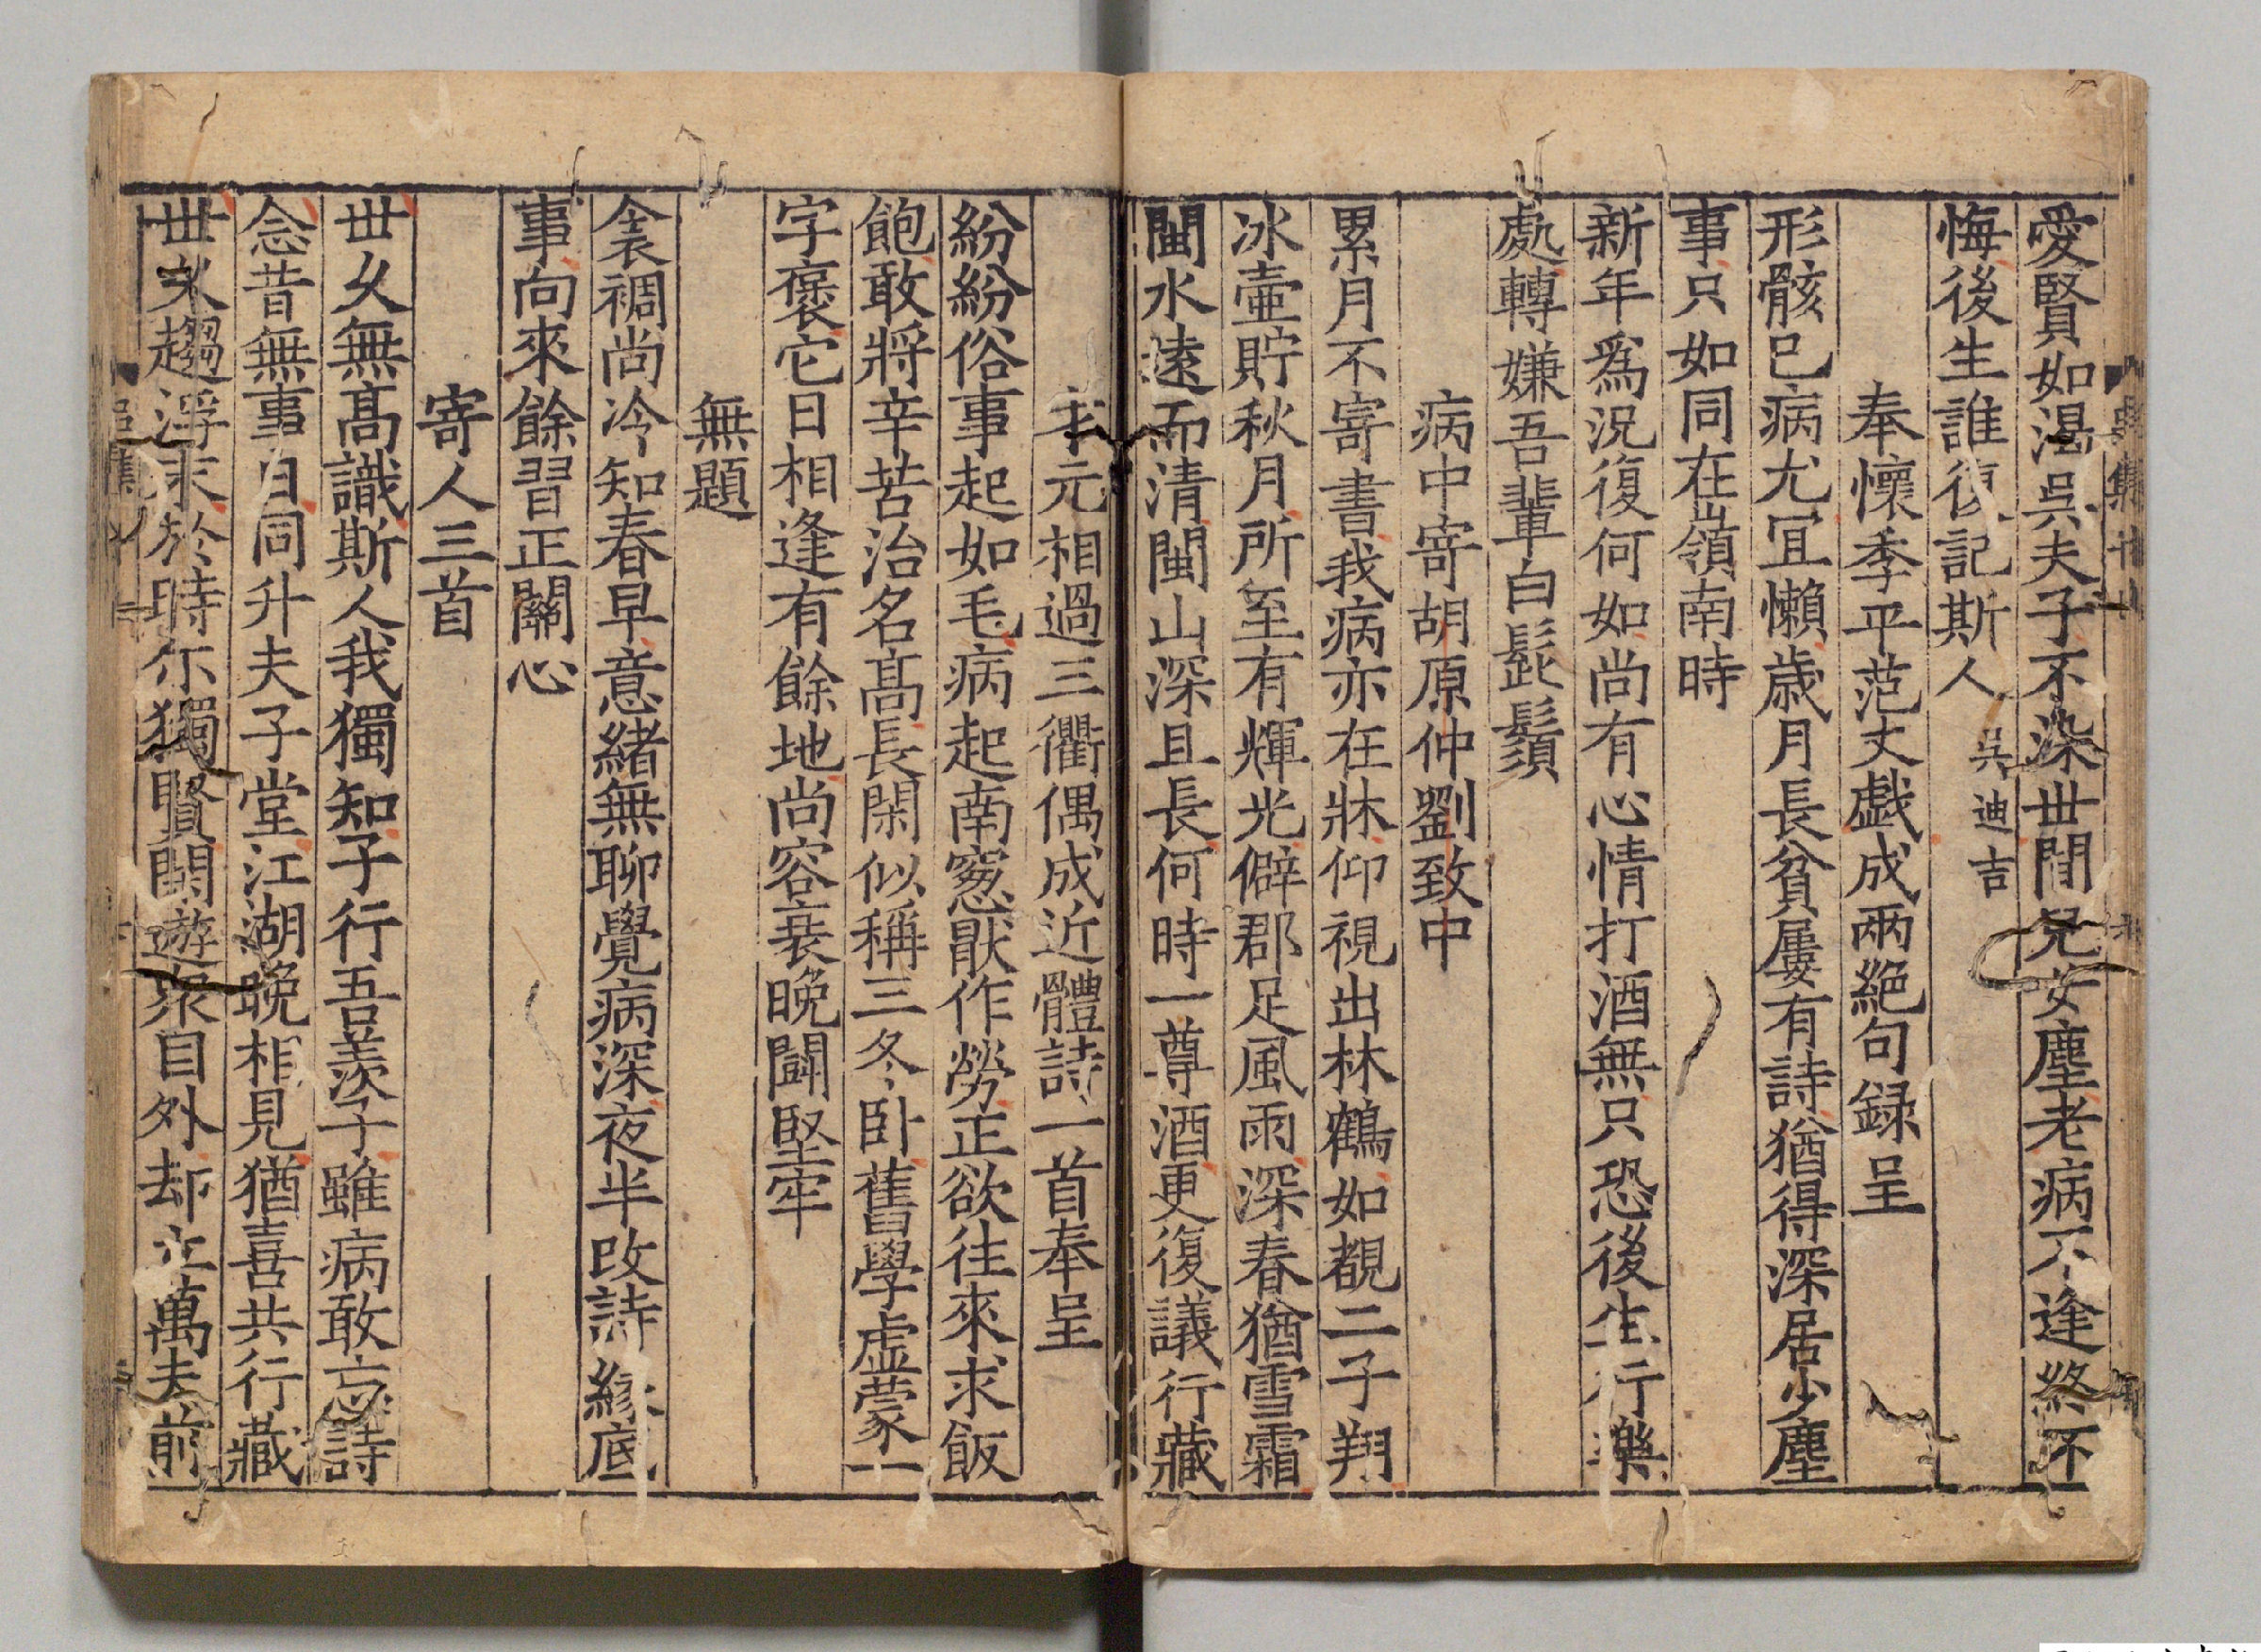 愛賢如渴吳夫子不染世間兒女塵老病不逢終不
悔後生誰復記斯人 吳迪吉
奉懷季平范丈戲成兩絶句録呈
形骸已病尤冝懶歲月長貧屢有詩猶得深居少塵
事只如同在嶺南時
新年爲況復何如尚有心情打酒無只恐後生行樂
處轉嫌吾輩白髭鬚
病中寄胡原仲劉致中
累月不寄書我病亦在牀仰視出林鶴如覩二子翔
冰壷貯秋月所至有輝光僻郡足風雨深春猶雪霜
閩水遠而清閩山深且長何時一尊酒更復議行藏
才元相過三衢偶成近體詩一首奉呈
紛紛俗事起如毛病起南窻猒作勞正欲往來求飯
飽敢將辛苦治名髙長閑似稱三冬卧舊學虚蒙一
字褒它日相逢有餘地尚容衰晚鬪堅牢
無題
衾裯尚冷知春早意緒無聊覺病深夜半改詩縁底
事向來餘習正關心
寄人三首
世久無髙識斯人我獨知子行吾羨子雖病敢忘詩
念昔無事日同升夫子堂江湖晚相見猶喜共行藏
世久趨浮末於時尓獨賢閴遊衆目外却立萬夫前